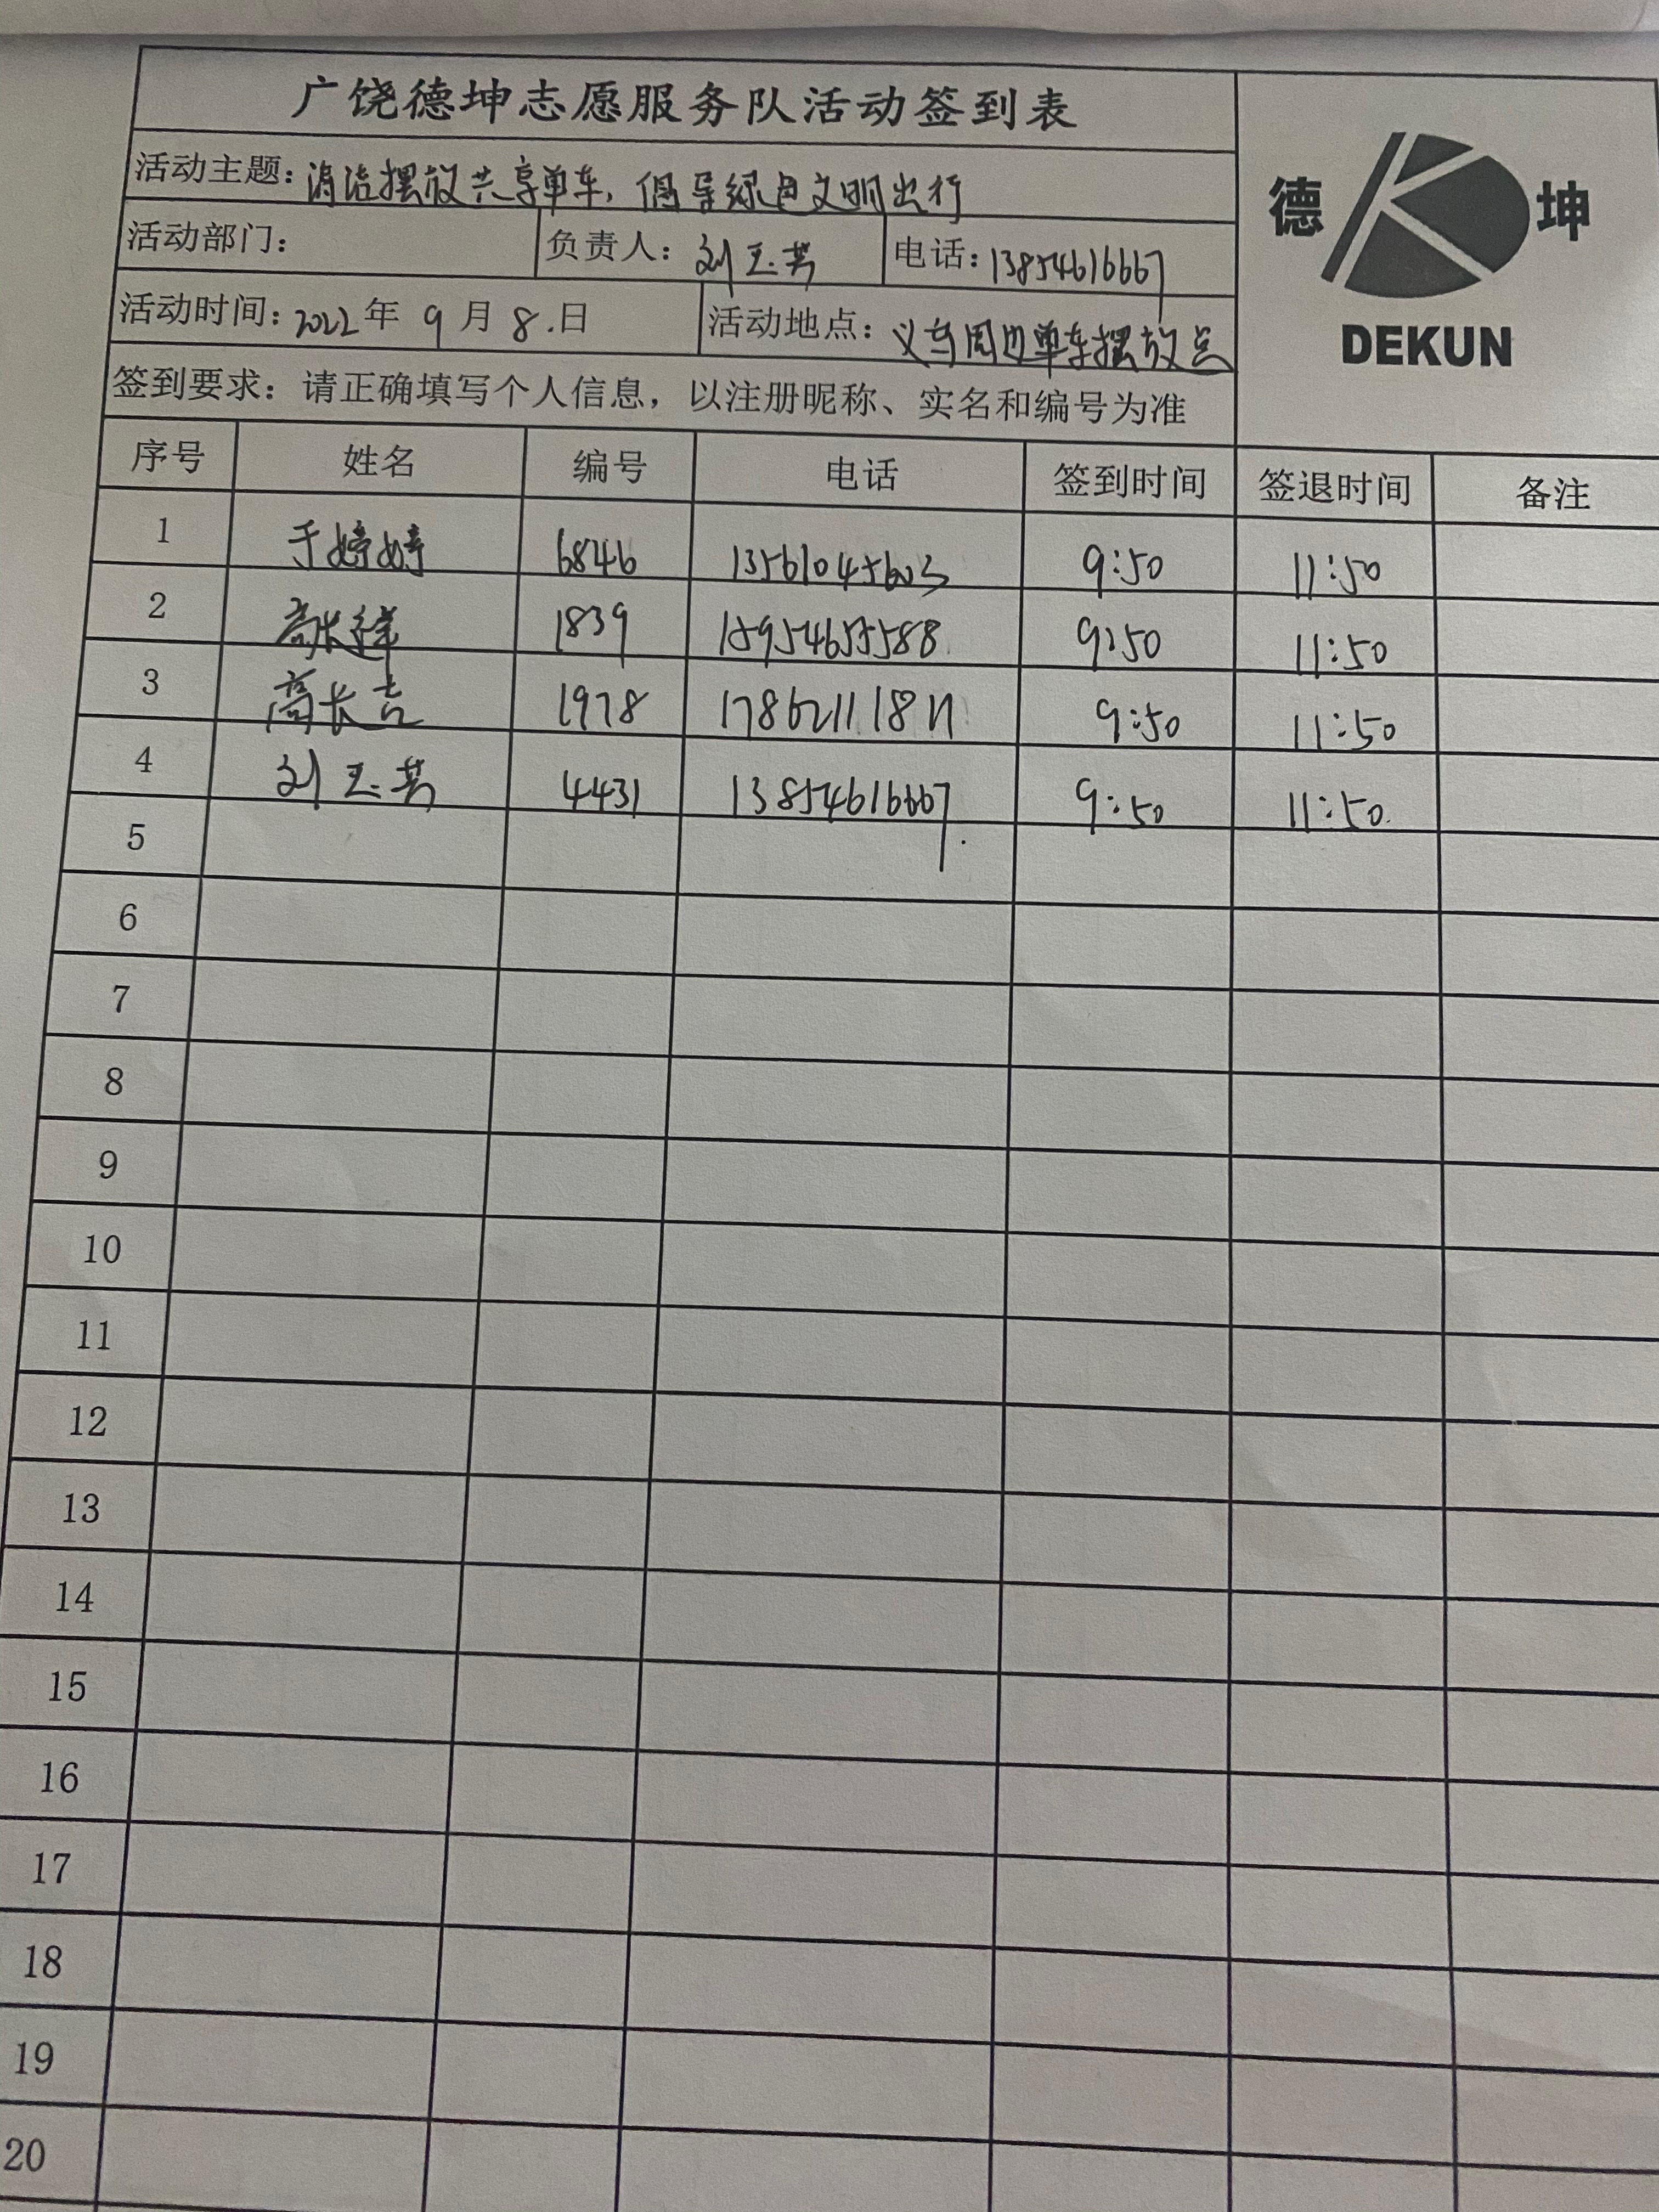 广饶德坤志愿服务队活动签到表
活动主题：清洁摆放共享单车，倡导绿色文明出行
德 坤
DEKUN
活动部门： 负责人：刘玉芸 电话：13854616667
活动时间：2022年 9 月 8 日 活动地点：义乌周边单车摆放点
签到要求：请正确填写个人信息，以注册昵称、实名和编号为准
序号 姓名 编号 电话 签到时间 签退时间 备注
1 于婷婷 6846 13561045603 9:50 11:50
2 1839 15954655588 9:50 11:50
3 高长吉 1978 9:50 11:50
4 刘玉芸 4431 13854616667 9:50 11:50
5
6
7
8
9
10
11
12
13
14
15
16
17
18
19
20